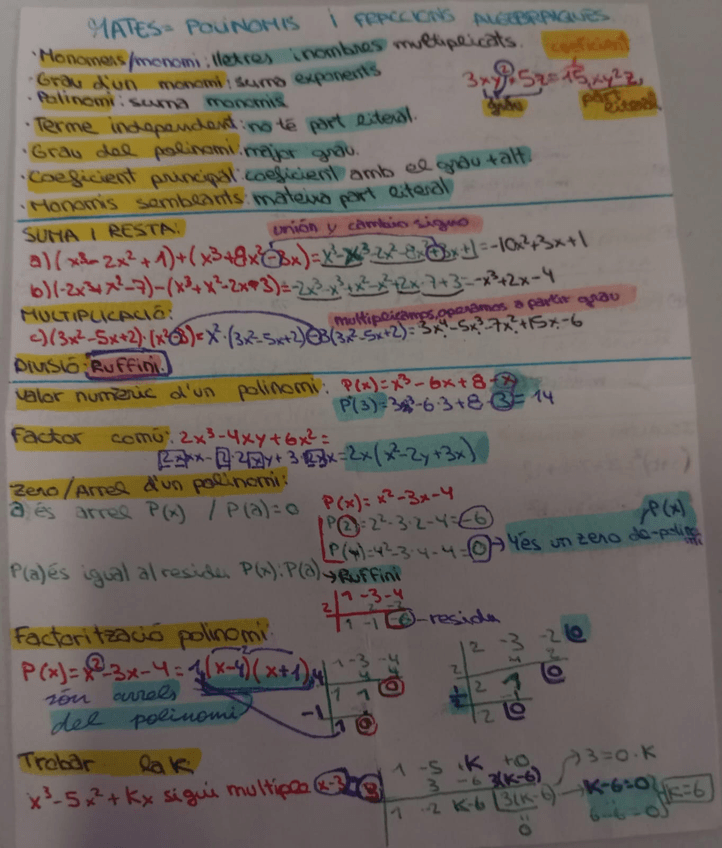 MATES= POLINOMIS I FRACCIONS ALGEBRAIQUES
· Monomess/monomi: lletres i nombres multiplicats.
coeficient
· Grau d'un monomi: suma exponents
3xy²·5z=15xy²z
· Polinomi: suma monomis
grau
part literal
· Terme independent: no té part literal.
· Grau del polinomi: major grau.
· Coeficient principal: coeficient amb el grau + alt.
· Monomis semblants: mateixa part literal
SUMA I RESTA:
unión y cambio signo
a)(x³-2x²+1)+(x³+8x²-3x)=x³-x³-2x²-8x²+3x+1=-10x²+3x+1
b)(-2x³+x²-7)-(x³+x²-2x+3)=-2x³-x³+x²-x²+2x-7+3=-x³+2x-4
MULTIPLICACIÓ:
multiplicamos, operamos a partir grau
c)(3x²-5x+2)·(x²-3)=x²·(3x²-5x+2)-3(3x²-5x+2)=3x⁴-5x³-7x²+15x-6
DIVISIÓ: Ruffini.
Valor numèric d'un polinomi: P(x)=x³-6x+8-x
P(3)=3³-6·3+8-3=14
Factor comú: 2x³-4xy+6x²=
2xxx-2·2xy+3·2xx=2x(x²-2y+3x)
Zero/Arrel d'un polinomi:
a és arrel P(x) / P(a)=0
P(x)=x²-3x-4
P(2)=2²-3·2-4=-6
P(x)
P(4)=4²-3·4-4=0→4 és un zero de polinomi
P(a) és igual al residu P(x):P(a)→Ruffini
1 -3 -4
2 2 -2
1 -1 -6-residu
Factorització polinomi:
P(x)=x²-3x-4=1(x-4)(x+1)
són arrels
del polinomi
4
1 -3 -4
1 1 0
-1
1 0
2 -3 -2 0
2
2 1 0
2 0
Trobar la K
x³-5x²+Kx sigui multiple x-3
3
1 -5 K +0
3 -6 3(K-6)
1 -2 K-6 3(K-6)
0
→3=0·K
→K-6=0
6-6=0
K=6